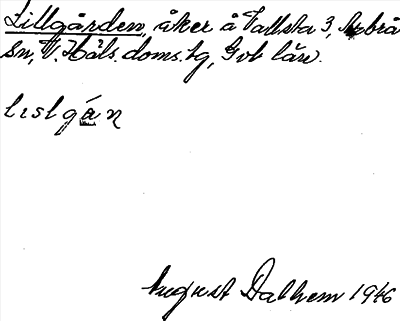 Lillgården, åker å Vallsta 3, Arbrå
sn, V. Häls. doms. tg, Gvb län.
lislgán
August Dalhem 1946